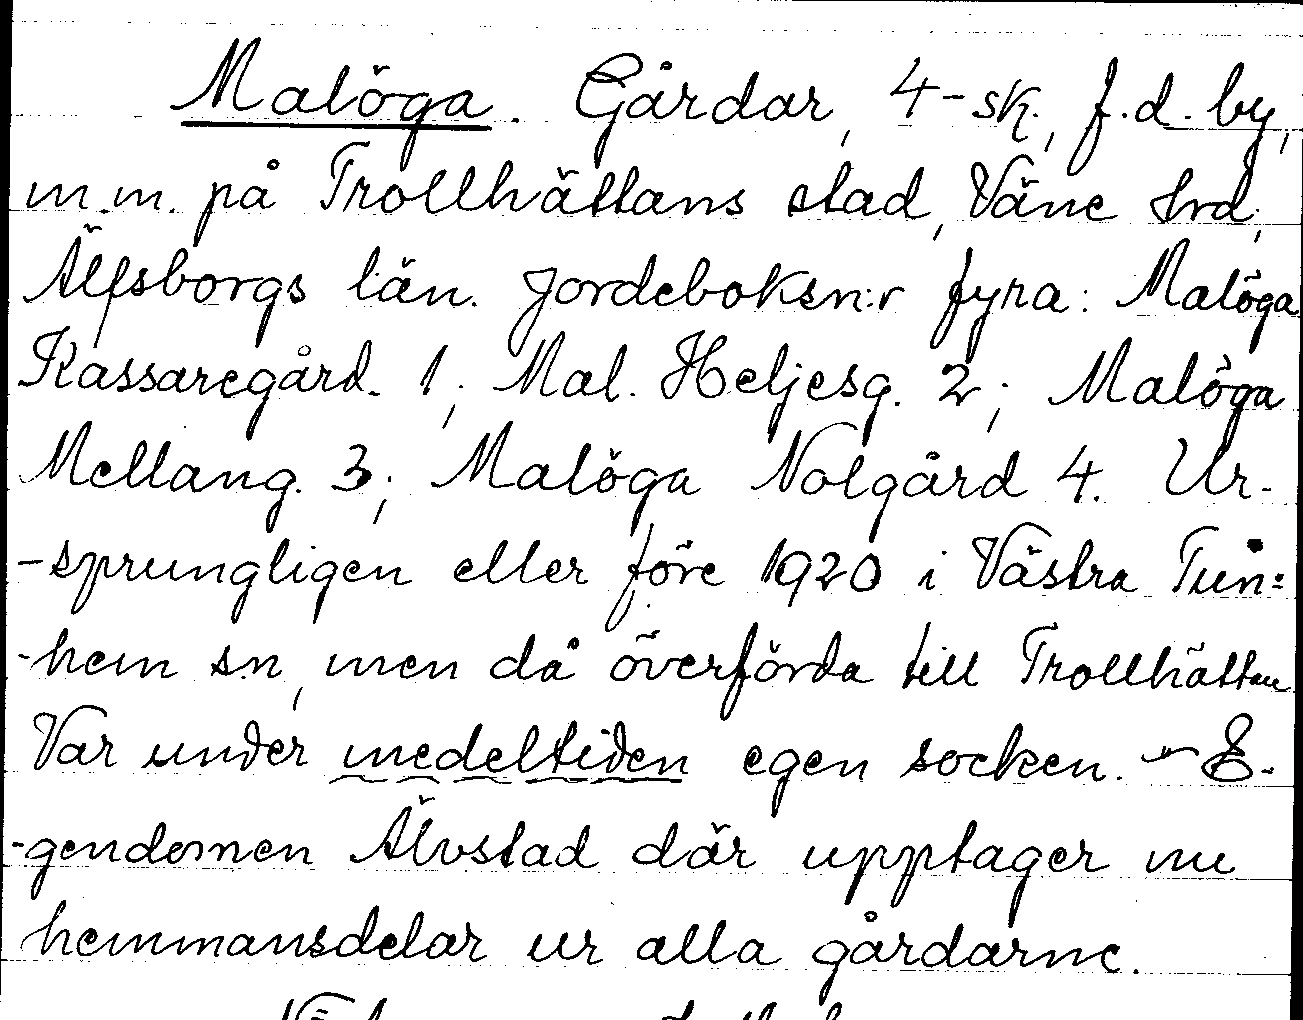 Malöga. Gårdar, 4-sk., f.d. by,
m.m. på Trollhättans stad, Väne hrd,
Älfsborgs län. Jordeboksn:r fyra: Malöga
Kassaregård. 1; Mal. Heljesg. 2; Malöga
Mellang. 3; Malöga Nolgård 4. Ur-
-sprungligen eller före 1920 i Västra Tun=
-hem sn, men då överförda till Trollhättan
Var under medeltiden egen socken. – E-
-gendomen Älvstad där upptager nu
hemmansdelar ur alla gårdarne.